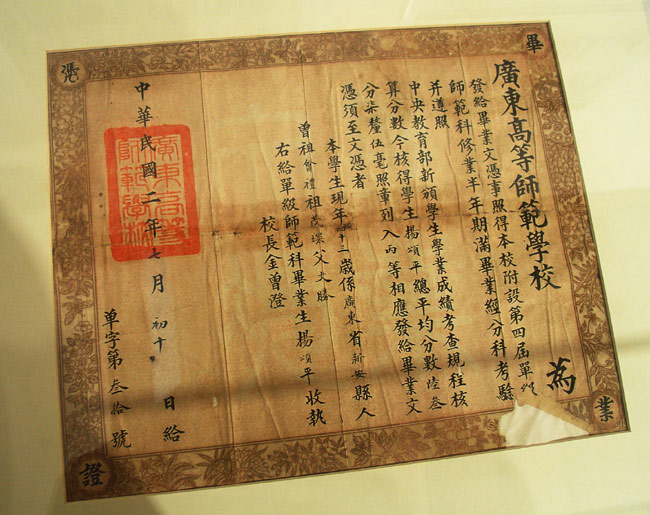 畢業憑證
廣東高等師範學校 為
發給畢業文憑事照得本校附設第四屆單級
師範科修業半年期滿畢業經分科考驗
并遵照
中央教育部新頒學生學業成績考查規程核
算分數今核得學生楊頌平總平均分數陸叁
分柒釐伍毫照章列入丙等相應發給畢業文
憑須至文憑者
本學生現年十二歲係廣東省新安縣人
曾祖會禮祖茂琛父文勝
右給單級師範科畢業生楊頌平收執
校長金曾澄
中華民國二年七月初十日給
单字第叁拾號
廣東高等師範學校